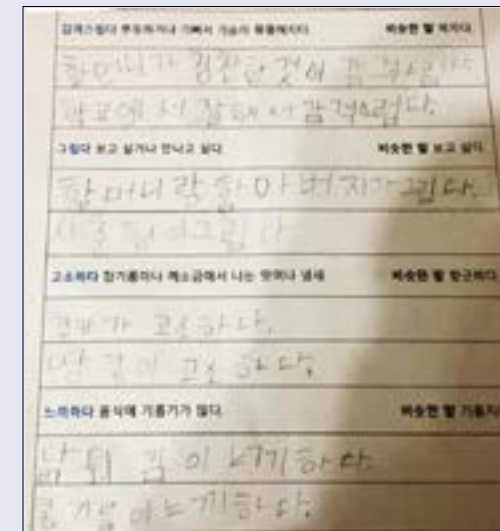 감격스럽다 뿌듯하거나 기뻐서 가슴이 뭉클해지다 비슷한 말 벅차다
할머니가 칭찬한 것이 감격스럽다
학교에서 잘해서 감격스럽다.
그립다 보고 싶거나 만나고 싶다 비슷한 말 보고 싶다
할머니랑 할아버지가 그립다.
그립다
고소하다 참기름이나 깨소금에서 나는 맛이나 냄새 비슷한 말 향긋하다
고소하다.
고소하다.
느끼하다 음식에 기름기가 많다 비슷한 말 기름지다
이 느끼하다.
이 느끼하다.